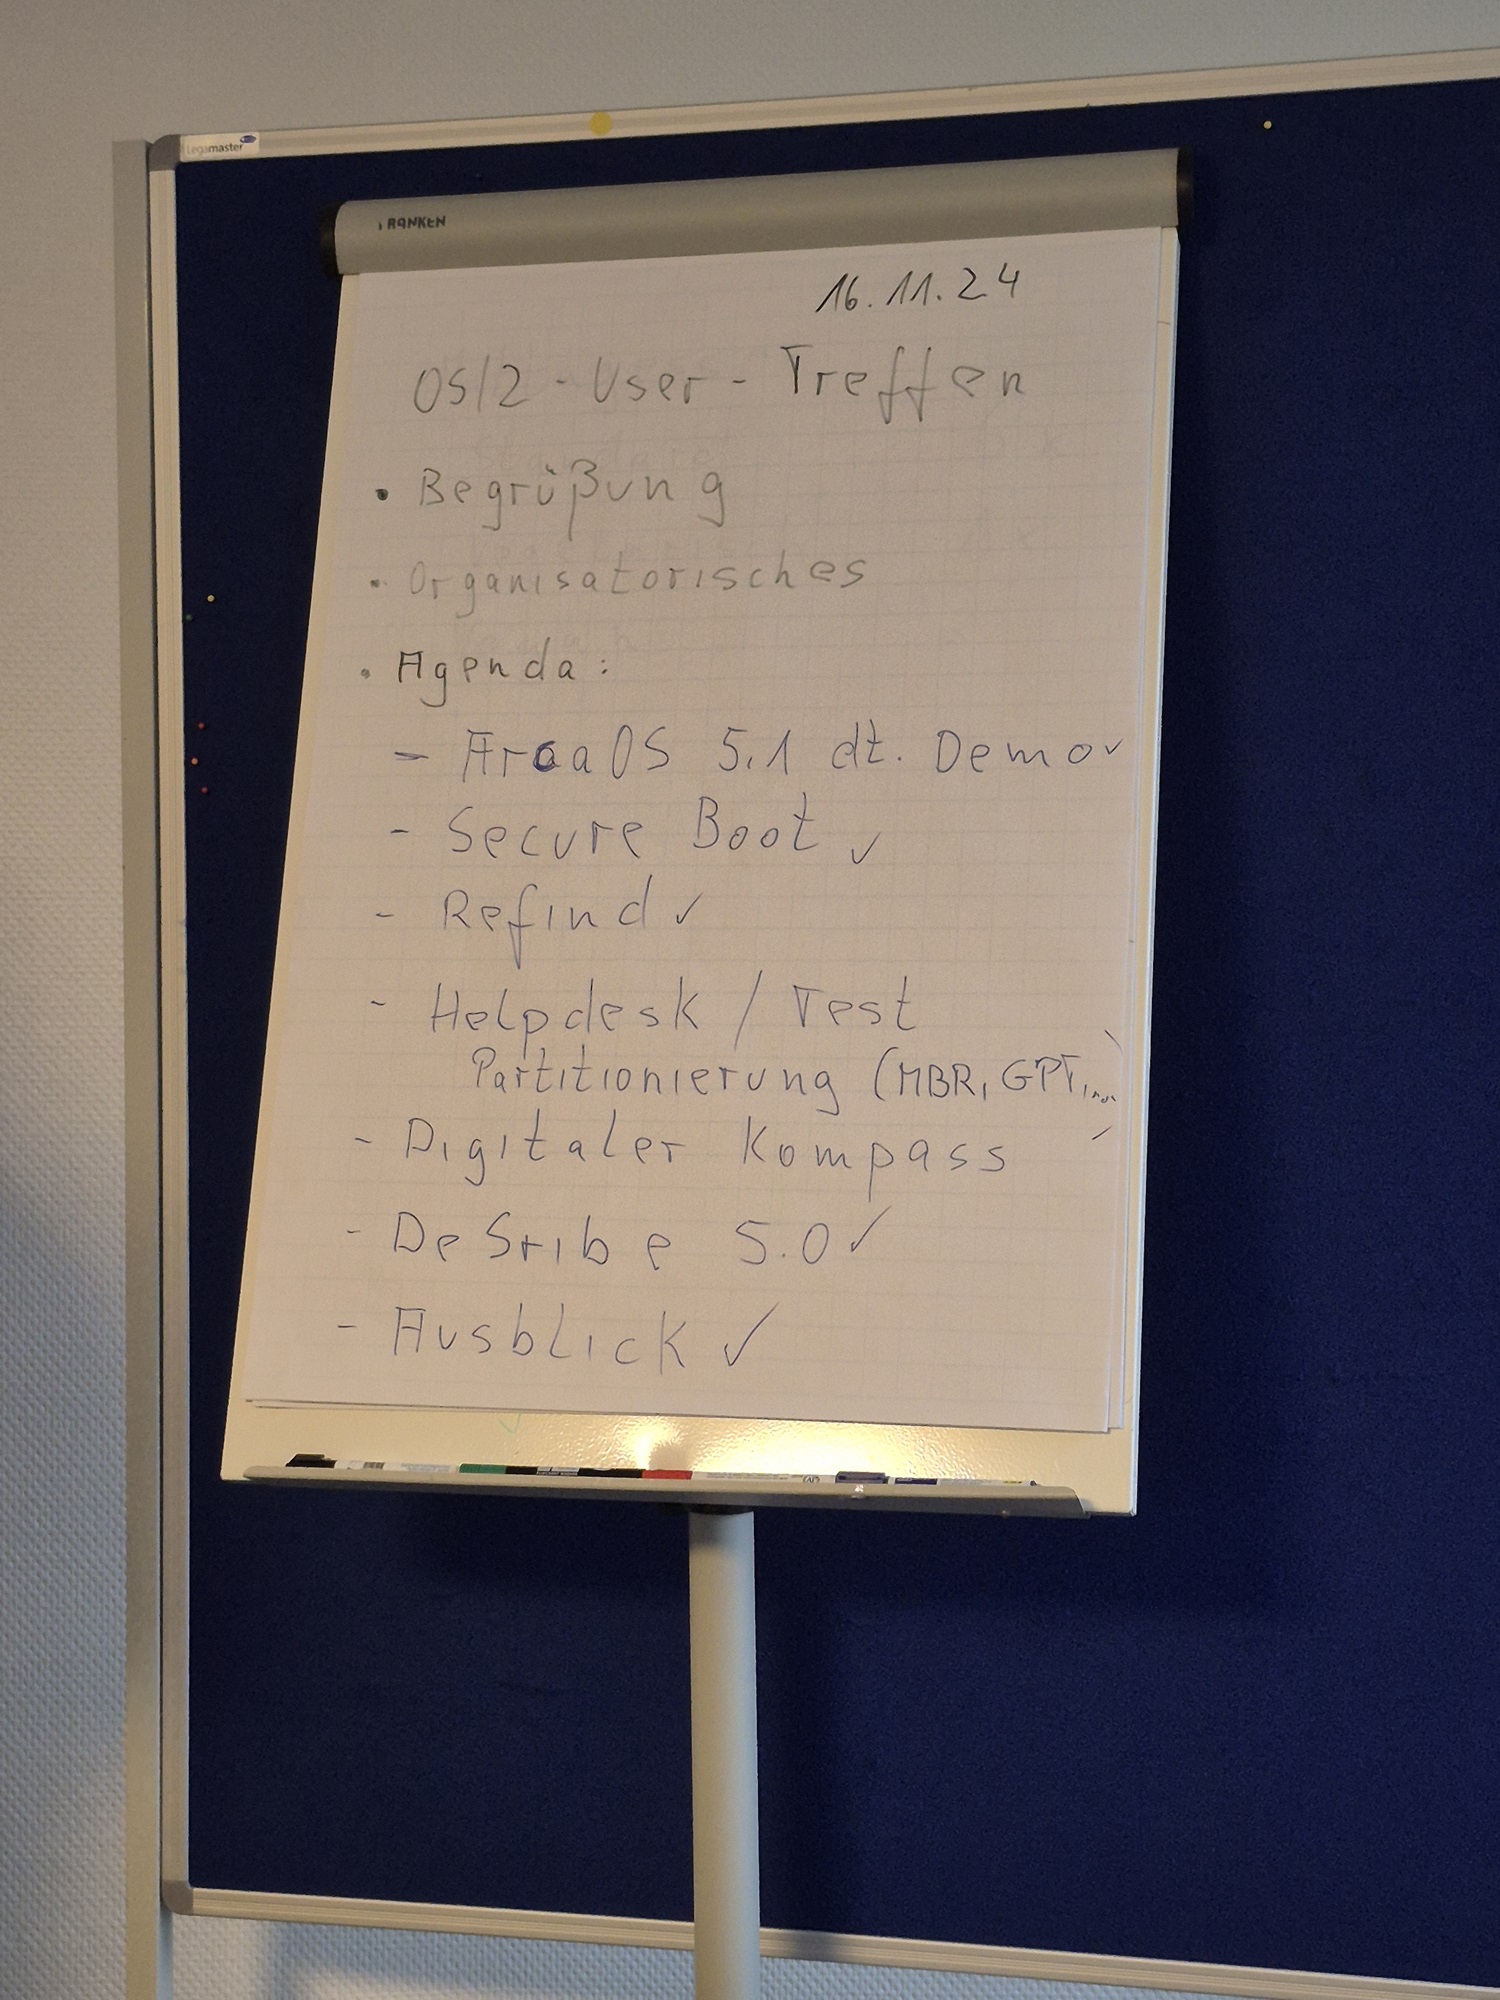 Legamaster
FRANKEN
16.11.24
OS/2 - User - Treffen
• Begrüßung
• Organisatorisches
• Agenda:
- ArcaOS 5.1 dt. Demo ✓
- Secure Boot ✓
- Refind ✓
- Helpdesk / Test
Partitionierung (MBR, GPT,...
- Digitaler Kompass
- DeSribe 5.0 ✓
- Ausblick ✓